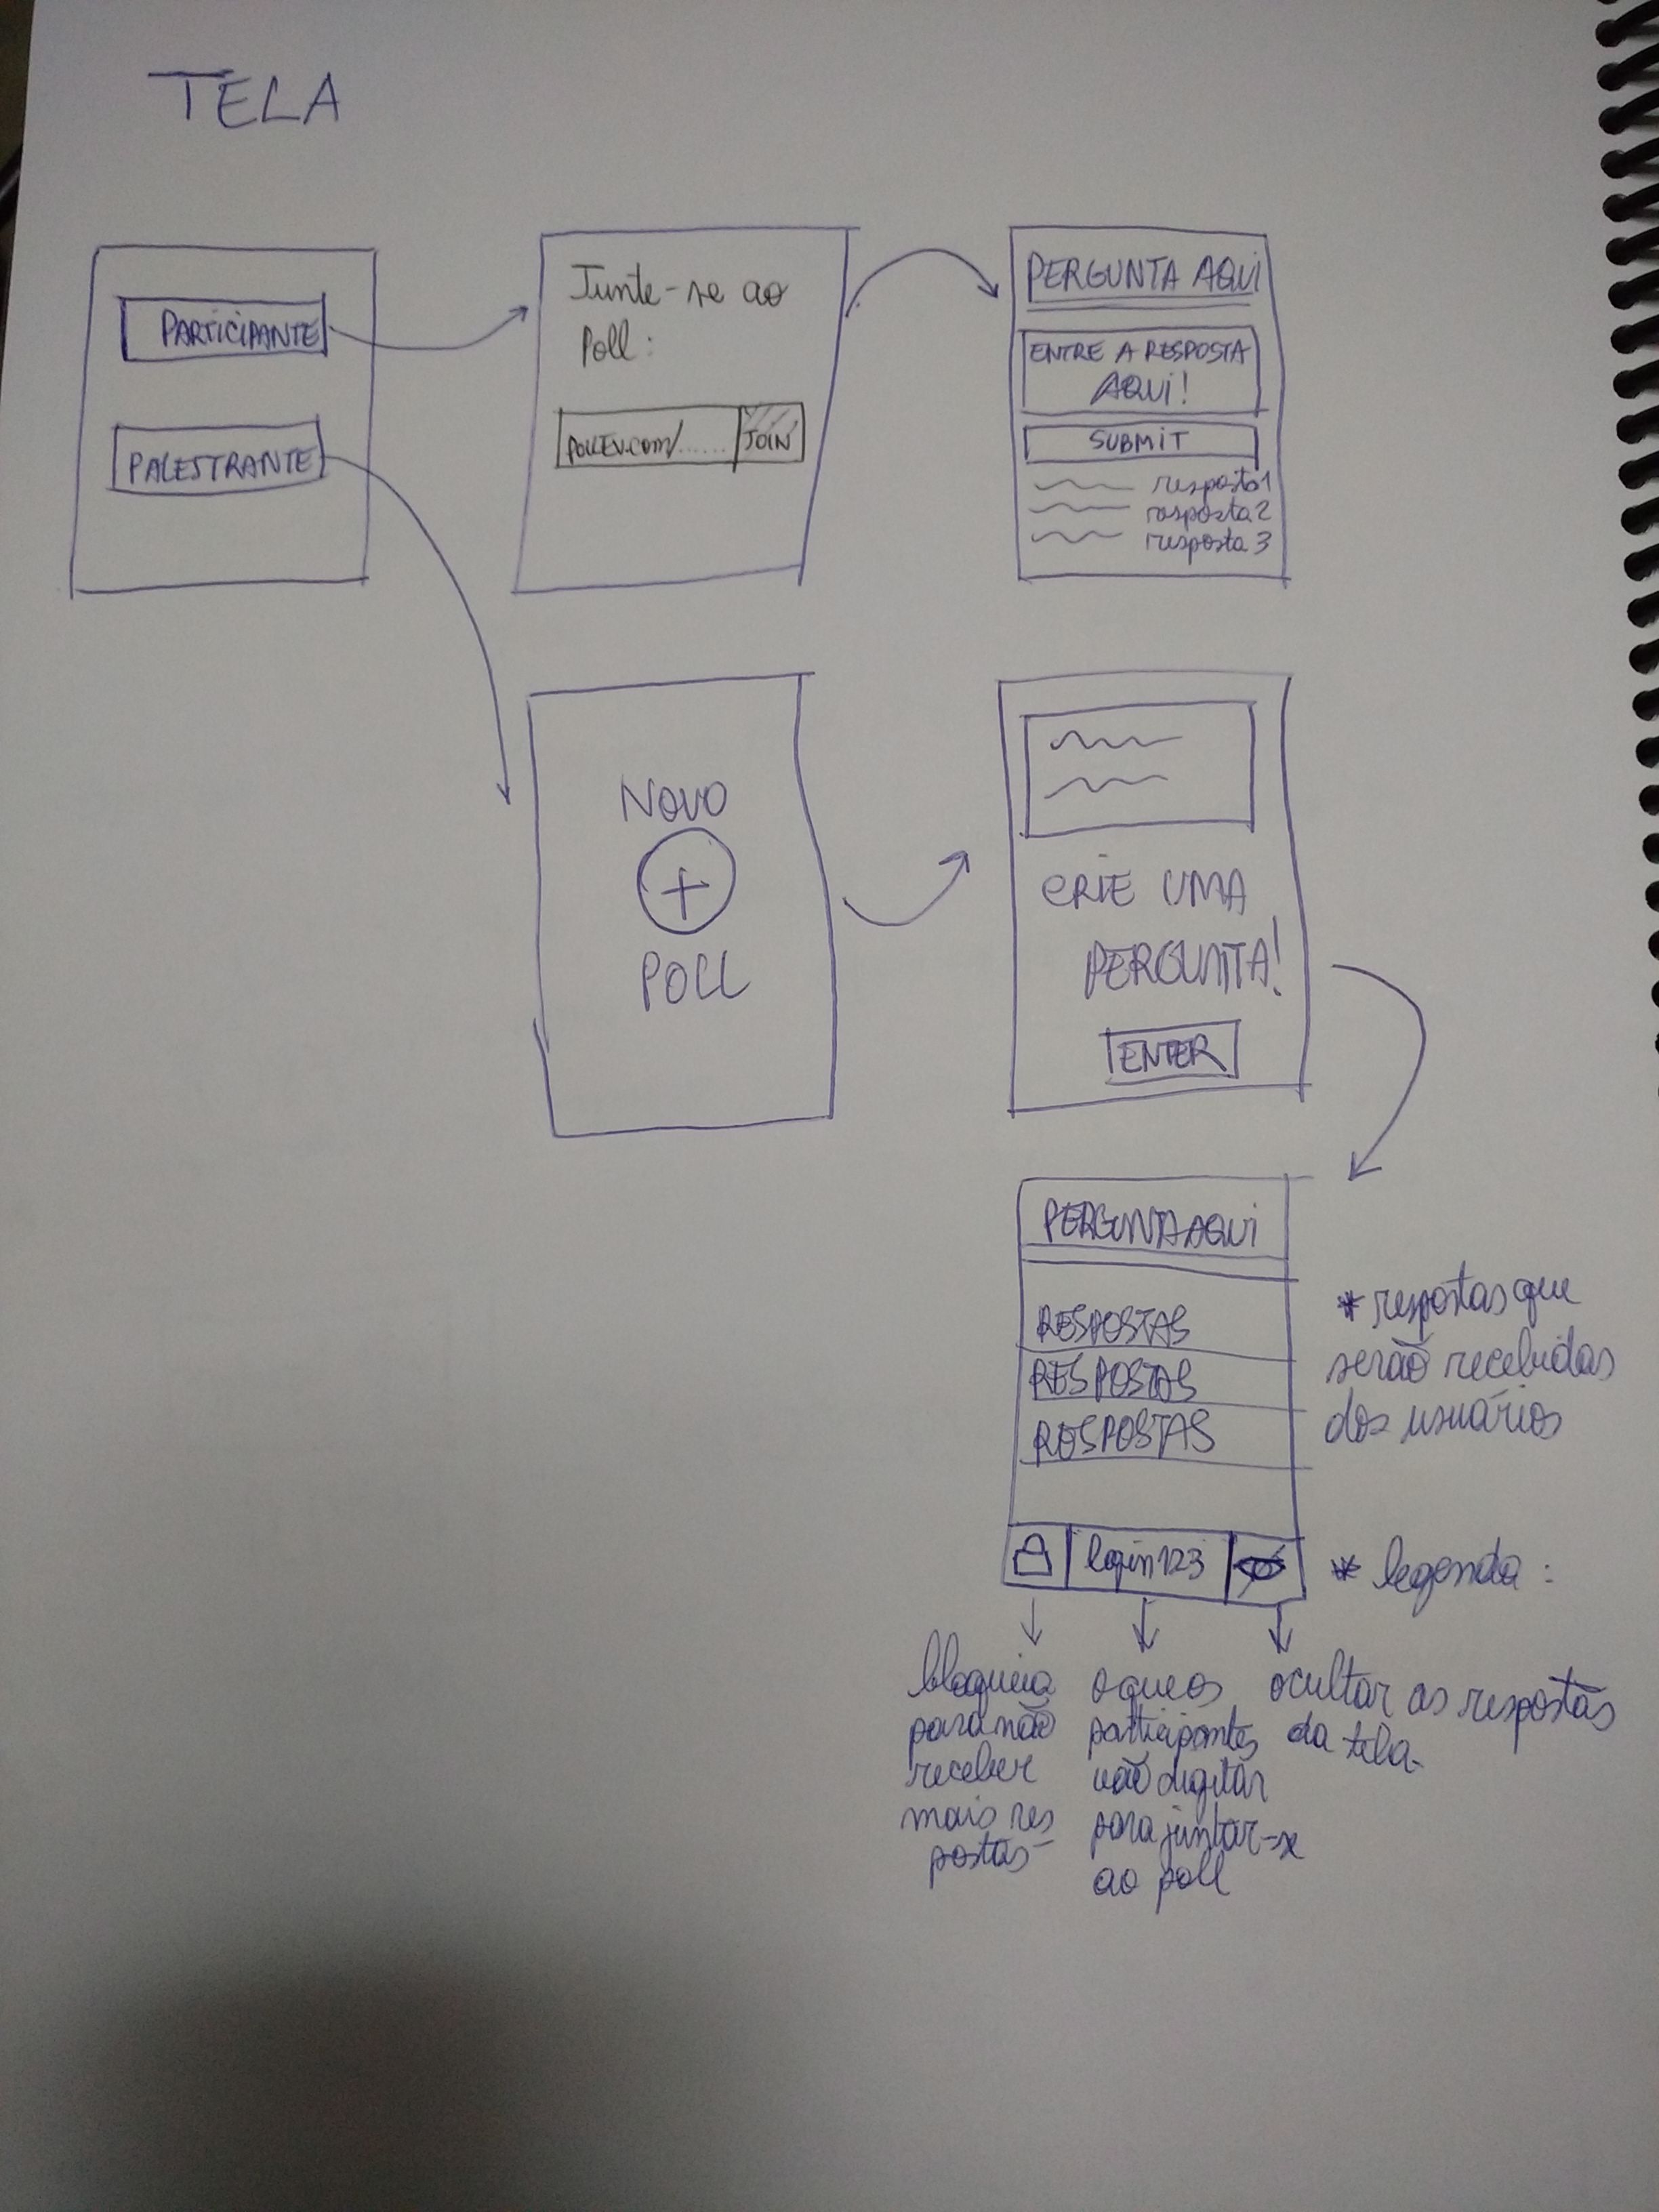 TELA
PARTICIPANTE
PALESTRANTE
Junte-se ao
Poll:
pollEv.com/......
JOIN
PERGUNTA AQUI
ENTRE A RESPOSTA
AQUI!
SUBMIT
resposta 1
resposta 2
resposta 3
NOVO
+
POLL
CRIE UMA
PERGUNTA!
ENTER
PERGUNTA AQUI
RESPOSTAS
RESPOSTAS
RESPOSTAS
* respostas que
serão recebidas
dos usuários
login123
* legenda:
bloqueia
para não
receber
mais res
postas
o que os
participantes
vão digitar
para juntar-se
ao poll
ocultar as respostas
da tela.